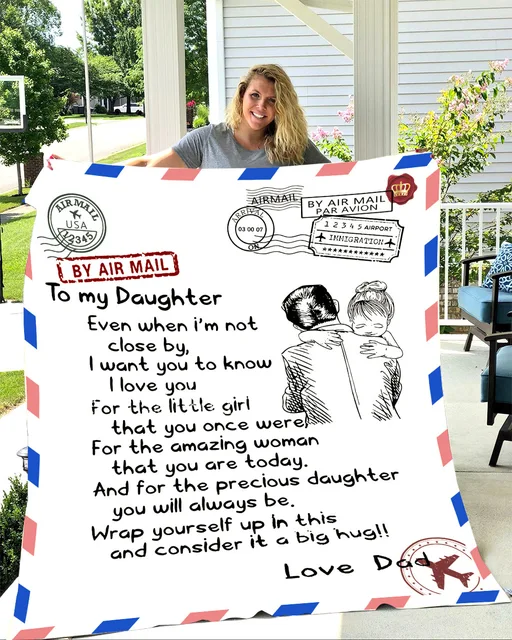 AIRMAIL
USA
12345
AIRMAIL
ARRIVAL
03 00 07
ON
BY AIR MAIL
PAR AVION
1 2 3 4 5 AIRPORT
IMMIGRATION
BY AIR MAIL
To my Daughter
Even when i'm not
close by,
I want you to know
I love you
For the little girl
that you once were,
For the amazing woman
that you are today.
And for the precious daughter
you will always be.
Wrap yourself up in this
and consider it a big hug!!
Love Dad